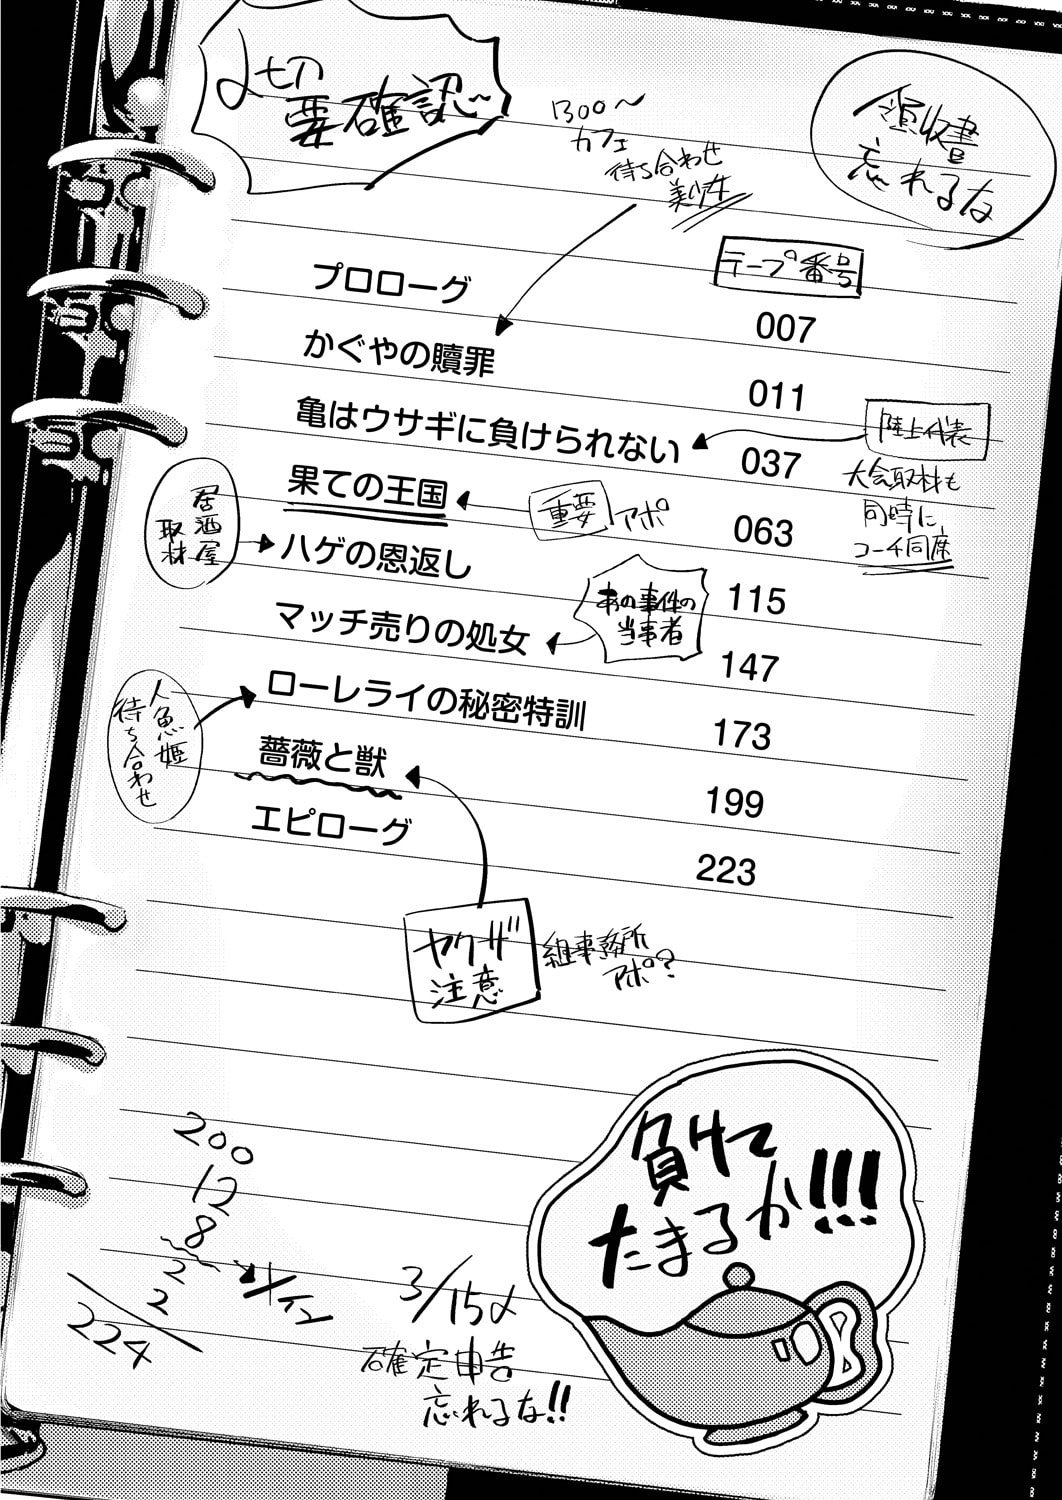 〆切
要確認〜
1300〜
カフェ
待ち合わせ
美少女
領収書
忘れるな
テープ番号
プロローグ 007
かぐやの贖罪 011
亀はウサギに負けられない 037
陸上代表
大会取材も
同時に、
コーチ同席
果ての王国 063
重要 アポ
居酒屋
取材
ハゲの恩返し 115
あの事件の
当事者
マッチ売りの処女 147
人魚姫
待ち合わせ
ローレライの秘密特訓 173
薔薇と獣 199
エピローグ 223
ヤクザ
注意
組事務所
アポ?
200
12
8
2
2
224
3/15〆
確定申告
忘れるな!!
負けて
たまるか!!!